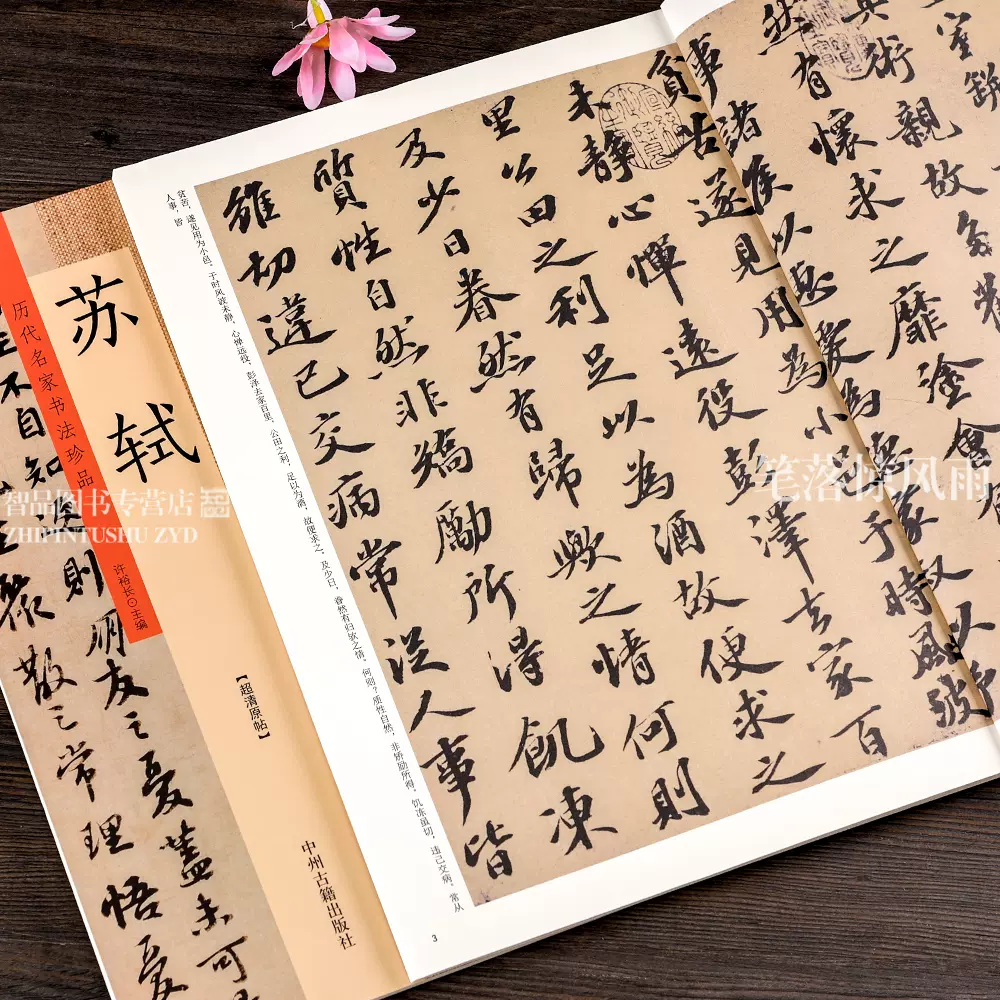 其術親故多勸
然有懷求之靡塗會
事諸侯以惠愛為德家叔以
貧苦遂見用為小邑于時風波
未靜心憚遠役彭澤去家百
里公田之利足以為酒故便求之
及少日眷然有歸歟之情何則
質性自然非矯勵所得飢凍
雖切違己交病常從人事皆
贫苦，遂见用为小邑。于时风波未静，心惮远役，彭泽去家百里，公田之利，足以为酒，故便求之。及少日，眷然有归欤之情。何则？质性自然，非矫励所得，饥冻虽切，违己交病。常从
人事，皆
3
苏轼
历代名家书法珍品
许裕长⊙主编
【超清原帖】
中州古籍出版社
則朋友之愛蓋未可
不自知
散之常理悟愛
智品图书专营店
ZHIPINTUSHU ZYD
笔落惊风雨